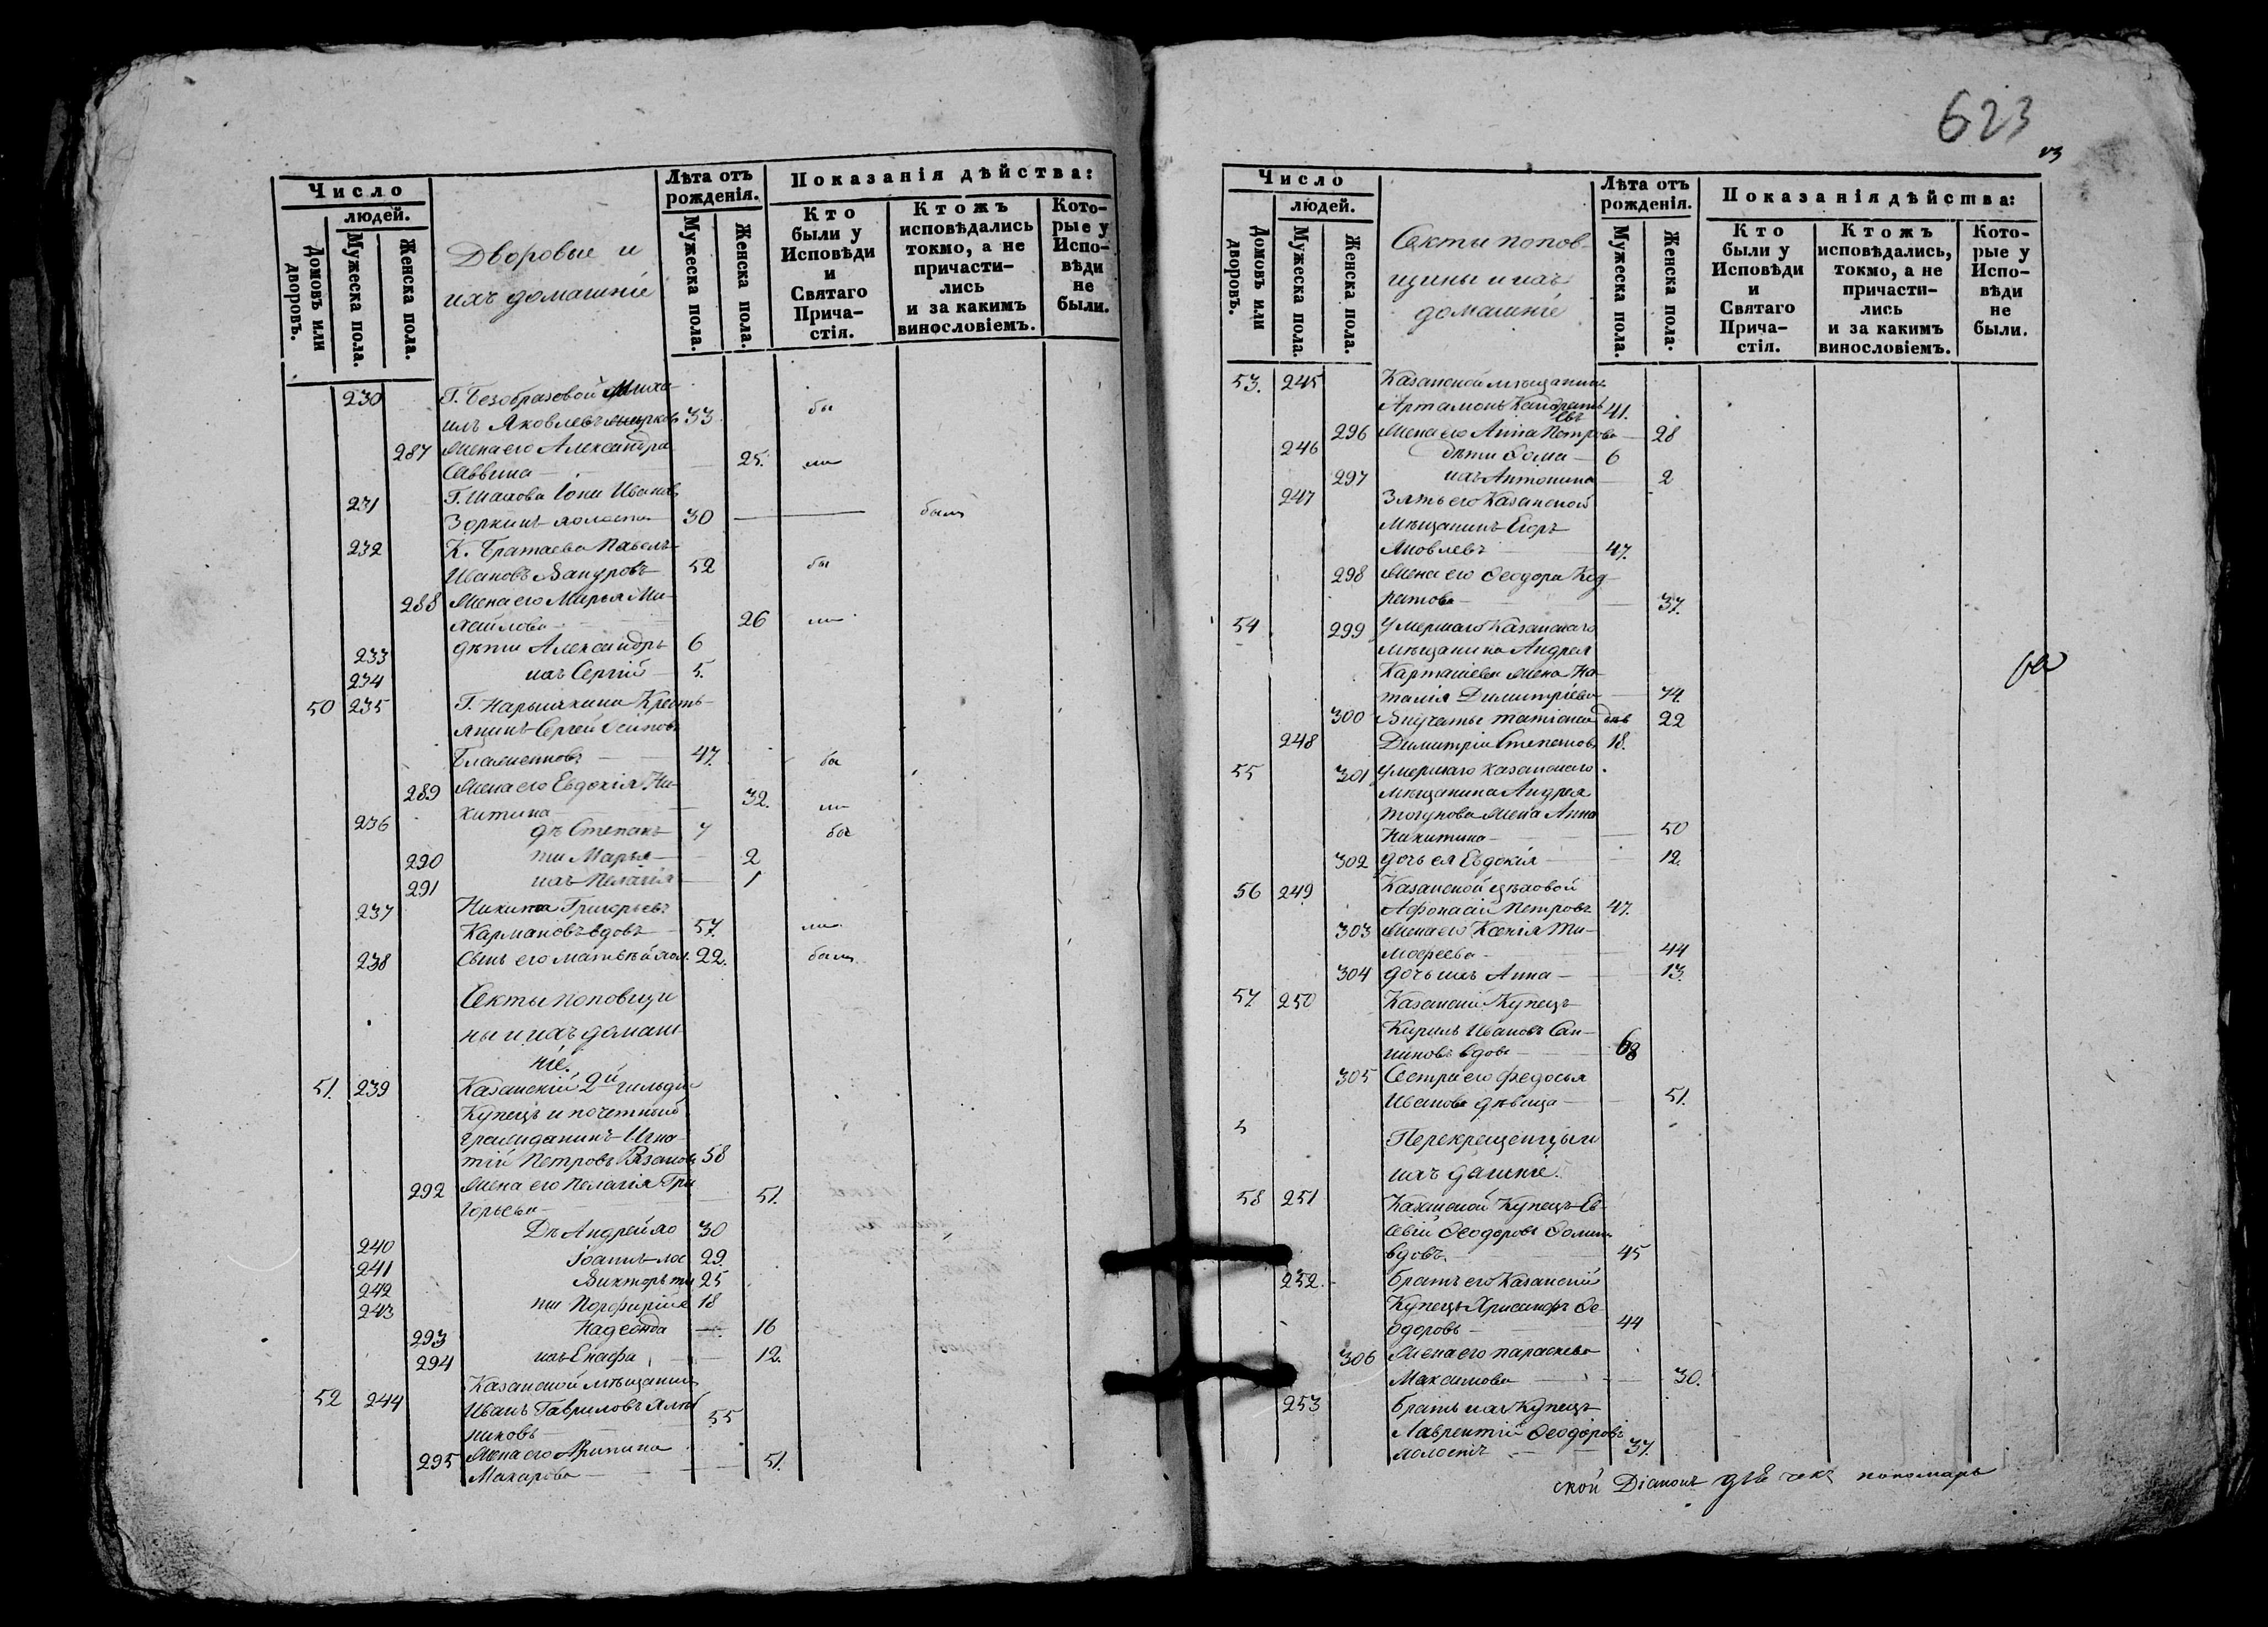 Число
людей.
Домовъ или дворовъ.
Мужеска пола.
Женска пола.
Дворовые и
ихъ домашніе
Лѣта отъ рожденія.
Мужеска пола.
Женска пола.
Показанія дѣйства:
Кто были у Исповѣди и Святаго Прича- стія.
Ктожъ исповѣдались токмо, а не причасти- лись и за какимъ винословіемъ.
Кото- рые у Испо- вѣди не были.
230 Г. Безобразовой Миха-
илъ Яковлевъ 33 бы
287 Жена его Александра
Саввина 25. ли
231 Г. Іона Ивановъ
Зоркинъ холостъ 30 былъ
232 К. Павелъ
Ивановъ 52 бы
288 Жена его Марья Ми-
хайлова 26 ли
233 дѣти Александръ 6
234 ихъ Сергій 5.
50 235 Г. Нарышкина Кресть-
янинъ Сергей Осиповъ
47. бы
289 Жена его Евдокія Ни-
китина 32. ли
236 дѣ Степанъ 7 бы
290 ти Марья 2
291 ихъ Пелагія 1
237 Никита Григорьевъ
Кармановъ вдовъ 57. ли
238 Сынъ его Матвѣй хол. 22. былъ
Секты поповщи
ны и ихъ домаш-
ніе.
51. 239 Казанскій 2й гильдіи
Купецъ и почетный
гражданинъ Игна-
тій Петровъ 58
292 Жена его Пелагія Гри
горьева 51.
240 Дѣ Андрей хо 30
241 Іоаннъ ло 29.
242 Викторъ ты 25
243 ти Порфирій е 18
293 Надежда 16
294 ихъ 12.
52 244 Казанской мѣщанинъ
Иванъ Гавриловъ
никовъ 55
295 Жена его
Макарова 51.
623
Число
людей.
Домовъ или дворовъ.
Мужеска пола.
Женска пола.
Секты попов-
щины и ихъ
домашніе
Лѣта отъ рожденія.
Мужеска пола.
Женска пола.
Показанія дѣйства:
Кто были у Исповѣди и Святаго Прича- стія.
Ктожъ исповѣдались, токмо, а не причасти- лись и за какимъ винословіемъ.
Кото- рые у Испо- вѣди не были.
53. 245 Казанской мѣщанинъ
Артамонъ Кондрать
евъ 41.
296 Жена его Анна Петрова 28
246 дѣти Ѳома 6
297 ихъ Антонина 2
247 Зять его Казанской
Мѣщанинъ Егоръ
Яковлевъ 47.
298 Жена его Ѳеодора Код-
ратова 37.
54 299 Умершаго Казанскаго
мѣщанина Андрея
Карташева жена На-
талія Димитріева 74.
300 Внучаты Татіана 22
248 Димитрій Степановъ 18.
55 301 Умершаго казанскаго
мѣщанина Андрея
жена Анна
Никитина 50
302 дочь ея Евдокія 12.
56 249 Казанской цѣховой
Афонасій Петровъ 47.
303 Жена его Ксенія Ти-
моѳеева 44
304 дочь ихъ Анна 13.
57. 250 Казанскій Купецъ
Кирилъ Ивановъ
вдовъ 68
305 Сестра его Федосья
Иванова дѣвица 51.
Перекрещенцы и
ихъ
58 251 Казанской Купецъ Ев-
севій Ѳеодоровъ
вдовъ 45
252. Братъ его Казанскій
Купецъ Хрисанфъ Ѳе-
одоровъ 44
306 Жена его Параскева
Максимова 30.
253 братъ ихъ Купецъ
Лаврентій Ѳеодоровъ
холостъ 37.
ской Діаконъ пономарь